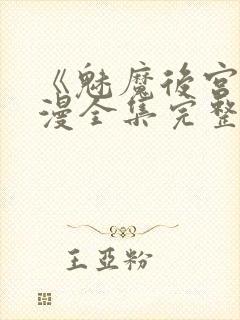 《魅魔後宮
漫全集完整
王亞粉